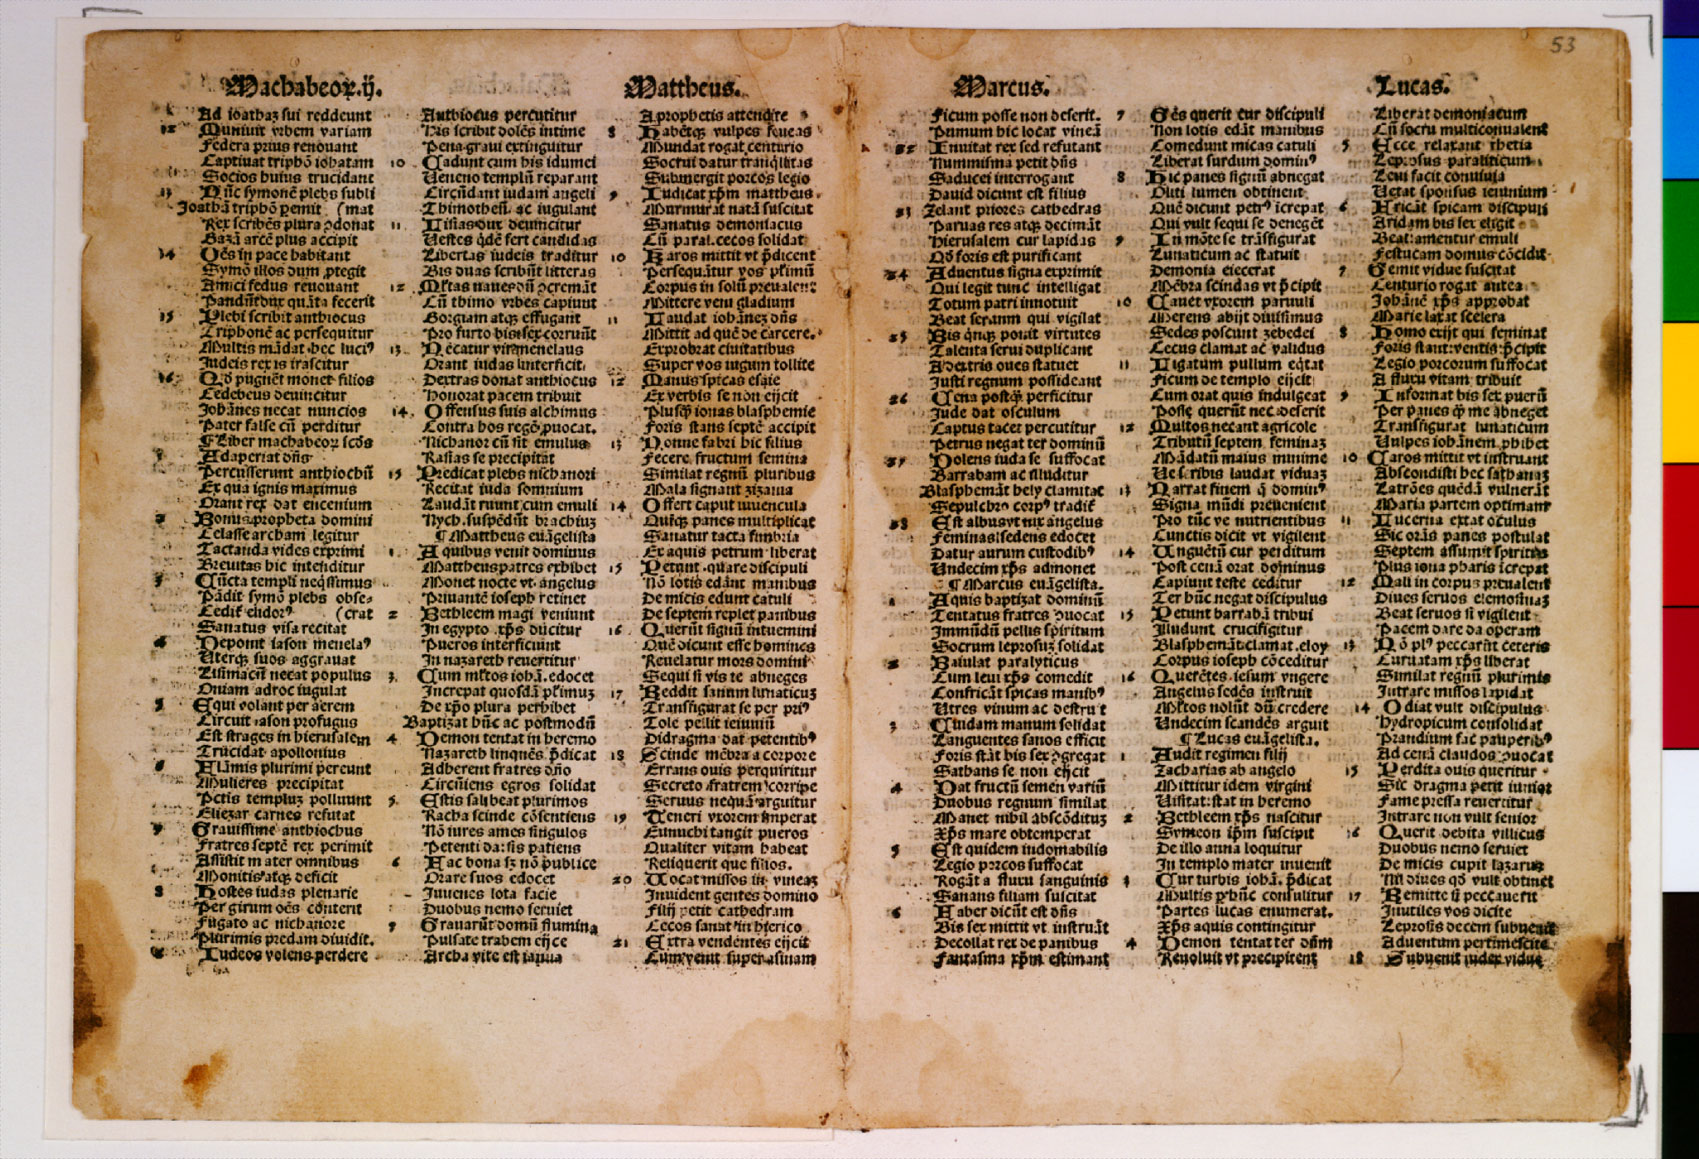 53
Machabeoꝝ.ij.
Ad ioathaz sui reddeunt
12 Muniuit vrbem variam
Federa prius renouant
Captiuat triphō iohatam
Socios huius trucidant
13 Nūc symonē plebs subli
Joathā triphō ꝑemit (mat
Rex scribēs plura ꝯdonat
Bazā arcē plus accipit
14 Oēs in pace habitant
Symō illos dum ꝓtegit
Amici fedus renouant
quāta fecerit
15 Plebi scribit anthiocus
Triphonē ac persequitur
Multis mādat hec luciꝰ
Iudeis rex irascitur
16 Qđ pugnēt monet filios
Cedebeus deuincitur
Johānes necat nuncios
Pater false cū perditur
¶ Liber machabeoꝝ scđs
Adaperiat dn̄s
Percusserunt anthiochū
Ex qua ignis maximus
Orant rex dat encenium
2 Bonus propheta domini
Celasse archam legitur
Tactanda vides exprimi
Breuitas hic intenditur
3 Cūcta templi neq̄ssimus
Pādit symō plebs obse-
Cedit eliodorꝰ (crat
Sanatus visa recitat
4 Deponit iason menelaꝰ
Uterqꝫ suos aggrauat
Lisimacū necat populus
Oniam adroc iugulat
5 Equi volant per aerem
Circuit iason profugus
Est strages in hierusalem
Trucidat apollonius
6 Flāmis plurimi pereunt
Mulieres precipitat
Petis templuz polluunt
Eliezar carnes refutat
7 Grauissime anthiochus
Fratres septē rex perimit
Assistit mater omnibus
Monitis atqꝫ deficit
8 Hostes iudas plenarie
Per girum oēs cōterit
Fugato ac nichanore
Plurimis predam diuidit.
Iudeos volens perdere
Anthiocus percutitur
His scribit dolēs intime
Pena graui extinguitur
10 Cadunt cum his idumei
Ueneno templū reparant
Circūdant iudam angeli
Thimotheū ac iugulant
11 Lisias dux deuincitur
Uestes q̄dē fert candidas
Libertas iudeis traditur
Bis duas scribūt litteras
12 Mltas naues dū ꝯcremāt
Cū thimo vrbes capiunt
Gorgiam atqꝫ effugant
Pro furto bissex corruūt
13 Necatur vir menelaus
Orant iudas interficit
Dextras donat anthiocus
Honorat pacem tribuit
14 Offensus suis alchimus
Contra hos regē ꝓuocat.
Nichanor cū sit emulus
Rasias se precipitat
15 Predicat plebs nichanori
Recitat iuda somnium
Laudāt ruunt cum emuli
Nych. suspēdūt brachiuz
¶ Mattheus euāgelista
1 A quibus venit dominus
Mattheus patres exhibet
Monet nocte vt angelus
Priuantē ioseph retinet
2 Bethleem magi veniunt
In egypto xp̄s ducitur
Pueros interficiunt
In nazareth reuertitur
3 Cum mltos iohā. edocet
Increpat quosdā plrimuz
De xp̄o plura perhibet
Baptizat hūc ac postmodū
4 Demon tentat in heremo
Nazareth linquēs p̄dicat
Adherent fratres dn̄o
Circūiens egros solidat
5 Estis sal iubeat plurimos
Racha scinde cōsentiens
Nō iures ames singulos
Petenti da: sis patiens
6 Hac bona sꝫ nō publice
Orare suos edocet
Iuuenes lota facie
Duobus nemo seruiet
7 Grauarūt domū flumina
Pulsate trabem eijce
Archa vite est ianua
Mattheus.
A prophetis attendite
8 Habētqꝫ vulpes foueas
Mundat rogat centurio
Socrui datur tranq̄litas
Submergit porcos legio
9 Iudicat xp̄m mattheus
Murmurāt natā suscitat
Sanatus demoniacus
Cū paral. cecos solidat
10 Karos mittit vt p̄dicent
Persequātur vos plrimū
Corpus in solū preualent
Mittere veni gladium
11 Laudat iohānez dn̄s
Mittit ad quē de carcere.
Exprobrat ciuitatibus
Super vos iugum tollite
12 Manus spicas esaie
Ex verbis se non eijcit
Plusqꝫ ionas blasphemie
Foris stans septē accipit
13 Nonne fabri hic filius
Fecere fructum semina
Similat regnū pluribus
Mala signant zizania
14 Offert caput iuuencula
Quīqꝫ panes multiplicat
Sanatur tacta fimbria
Ex aquis petrum liberat
15 Petunt quare discipuli
Nō lotis edānt manibus
De micis edunt catuli
De septem replet panibus
16 Querūt signū intuemini
Quē dicunt esse homines
Reuelatur mors domini
Sequi si vis te abneges
17 Reddit sanum lunaticuz
Transfigurat se per priꝰ
Tole pellit ieiuniū
Didragma dat petentibꝰ
18 Scinde mēbra a corpore
Errans ouis perquiritur
Secreto fratrem corripe
Seruus nequā arguitur
19 Teneri vxorem imperat
Eunuchi tangit pueros
Qualiter vitam habeat
Reliquerit que filios.
20 Uocat missos in vineaz
Inuident gentes domino
Filij petit cathedram
Cecos sanat in hierico
21 Extra vendentes eijcit
Cum venit super asinam
Marcus.
Ficum posse non deserit.
Pumum hic locat vineā
22 Inuitat rex sed refutant
Nummisma petit dn̄s
Saducei interrogant
Dauid dicunt est filius
23 Zelant priores cathedras
Paruas res atqꝫ decimāt
Hierusalem cur lapidas
Qđ foris est purificant
24 Aduentus signa exprimit
Qui legit tunc intelligat
Totum patri innotuit
Beat seruum qui vigilat
25 Bis q̄nqꝫ ponit virtutes
Talenta serui duplicant
A dextris oues statuet
Justi regnum possideant
26 Cena postqꝫ perficitur
Jude dat osculum
Captus tacet percutitur
Petrus negat ter dominū
27 Nolens iuda se suffocat
Barrabam ac illuditur
Blasphemāt hely clamitat
Sepulchro corpꝰ tradit̄
28 Est albus vt nix angelus
Feminas sedens edocet
Datur aurum custodibꝰ
Undecim xp̄s admonet
¶ Marcus euāgelista.
1 Aquis baptizat dominū
Tentatus fratres ꝓuocat
Immūdū pellis spiritum
Socrum leprosuz solidat
2 Baiulat paralyticus
Cum leui xp̄s comedit
Confricāt spicas manibꝰ
Utres vinum ac destruit
3 Cuidam manum solidat
Languentes sanos efficit
Foris stāt bis sex ꝯgregat
Sathans se non eijcit
4 Dat fructū semen variū
Duobus regnum similat
Manet nihil abscōdituz
Xp̄s mare obtemperat
5 Est quidem indomabilis
Legio porcos suffocat
Rogāt a fluxu sanguinis
Sanans filiam suscitat
6 Faber dicūt est dn̄s
Bis sex mittit vt instruāt
Decollat rex de panibus
Fantasma xp̄m estimant
7 Gēs querit cur discipuli
Non lotis edāt manibus
Comedunt micas catuli
Liberat surdum dominꝰ
8 Hic panes signū abnegat
Oluti lumen obtinent
Quē dicunt petrꝰ īcrepat
Qui vult sequi se denegēt
9 In mōte se trāsfigurat
Lunaticum ac statuit
Demonia eiecerat
Mēbra scindas vt p̄cipit
10 Cauet vxorem paruuli
Merens abijt diuissimus
Sedes poscunt zebedei
Cecus clamat ac validus
11 Ligatum pullum eq̄tat
Ficum de templo eijcit
Cum orat quis indulgeat
Posse querūt nec deserit
12 Multos necant agricole
Tributū septem feminaz
Mādatū maius minime
Ue scribis laudat viduaz
13 Narrat finem q̄ dominꝰ
Signa mūdi preuenient
Pro tūc ve nutrientibus
Cunctis dicit vt vigilent
14 Unguētū cur perditum
Post cenā orat dominus
Capiunt teste ceditur
Ter hūc negat discipulus
15 Petunt barrabā tribui
Illudunt crucifigitur
Blasphemāt clamat eloy
Corpus ioseph cōceditur
16 Querētes iesum vngere
Angelus sedēs instruit
Mltos nolūt dū credere
Undecim scandēs arguit
¶ Lucas euāgelista.
1 Audit regimen filij
Zacharias ab angelo
Mittitur idem virgini
Uisitat: stat in heremo
2 Bethleem xp̄s nascitur
Symeon ip̄m suscipit
De illo anna loquitur
In templo mater inuenit
3 Cur turbis iohā. p̄dicat
Multis ꝑ hūc consulitur
Partes lucas enumerat.
Xp̄s aquis contingitur
4 Demon tentat ter dn̄m
Reuoluit vt precipitent
Lucas.
Liberat demoniacum
Cū socru multi conualent
5 Ecce relaxant rhetia
Leprosus paraliticum
Leui facit conuiuia
Uetat sponsus ieiunium
6 Fricāt spicam discipuli
Aridam bis sex eligit
Beat: amentur emuli
Festucam domus cōcidit
7 Gemit vidue suscitat
Centurio rogat antea
Johānē xp̄s approbat
Marie laxat scelera
8 Homo exijt qui seminat
Foris stant: ventis p̄cipit
Legio porcorum suffocat
A fluxu vitam tribuit
9 Informat bis sex puerū
Per panes q̄ me abneget
Transfigurat lunaticum
Uulpes iohānem ꝓhibet
10 Caros mittit vt instruant
Abscondisti hec sathanaz
Latrōes quēdā vulnerāt
Maria partem optimam
11 Lucerna extat oculus
Sic orās panes postulat
Septem assumit spiritus
Plus iona pharis īcrepat
12 Mali in corpus preualent
Diues seruos elemosinaz
Beat seruos si vigilent
Pacem dare da operam
13 Nō plꝰ peccarūt ceteris
Curuatam xp̄s liberat
Similat regnū plurimis
Intrare missos lapidat
14 Odiat vult discipulus
Hydropicum consolidat
Prandium fac pauperibꝰ
Ad cenā claudos ꝓuocat
15 Perdita ouis queritur
Sic dragma petit iunior
Fame pressa reuertitur
Intrare non vult senior
16 Querit debita villicus
Duobus nemo seruiet
De micis cupit lazarus
Nil diues qđ vult obtinet
17 Remitte si peccauerit
Inutiles vos dicite
Leprosis decem subuenit
Aduentum pertimescite
18 Subuenit iudex vidue